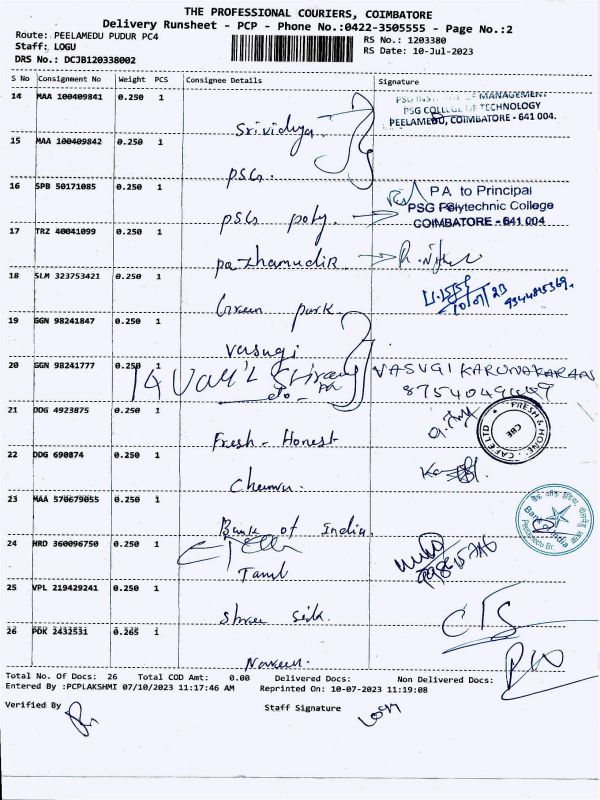 THE PROFESSIONAL COURIERS, COIMBATORE
Delivery Runsheet - PCP - Phone No.:0422-3505555 - Page No.:2
Route: PEELAMEDU PUDUR PC4
RS No.: 1203380
Staff: LOGU
RS Date: 10-Jul-2023
DRS No.: DCJB120338002
S No Consignment No Weight PCS Consignee Details Signature
14 MAA 100409841 0.250 1 Srividhya.
PSG INSTITUTE OF MANAGEMENT
PSG COLLEGE OF TECHNOLOGY
PEELAMEDU, COIMBATORE - 641 004.
15 MAA 100409842 0.250 1 PSG.
16 SPB 50171085 0.250 1 PSG poly.
PA to Principal
PSG Polytechnic College
COIMBATORE - 641 004
17 TRZ 40041099 0.250 1 pazhamudir
18 SLM 323753421 0.250 1 Green park
19 GGN 98241847 0.250 1 Vasugi
20 GGN 98241777 0.250 1
VASUGI KARUNAKARAN
21 DDG 4923875 0.250 1 Fresh - Honest
FRESH & HONE CAFE LTD
CBE
22 DDG 690874 0.250 1
23 MAA 570679055 0.250 1 Bank of India.
Bank of India
Peelamedu Br.
24 HRD 360096750 0.250 1 Tamil
25 VPL 219429241 0.250 1 Shree silk.
26 PDK 2432531 0.265 1 Naveen.
Total No. Of Docs: 26 Total COD Amt: 0.00 Delivered Docs: Non Delivered Docs:
Entered By :PCPLAKSHMI 07/10/2023 11:17:46 AM Reprinted On: 10-07-2023 11:19:08
Verified By Staff Signature